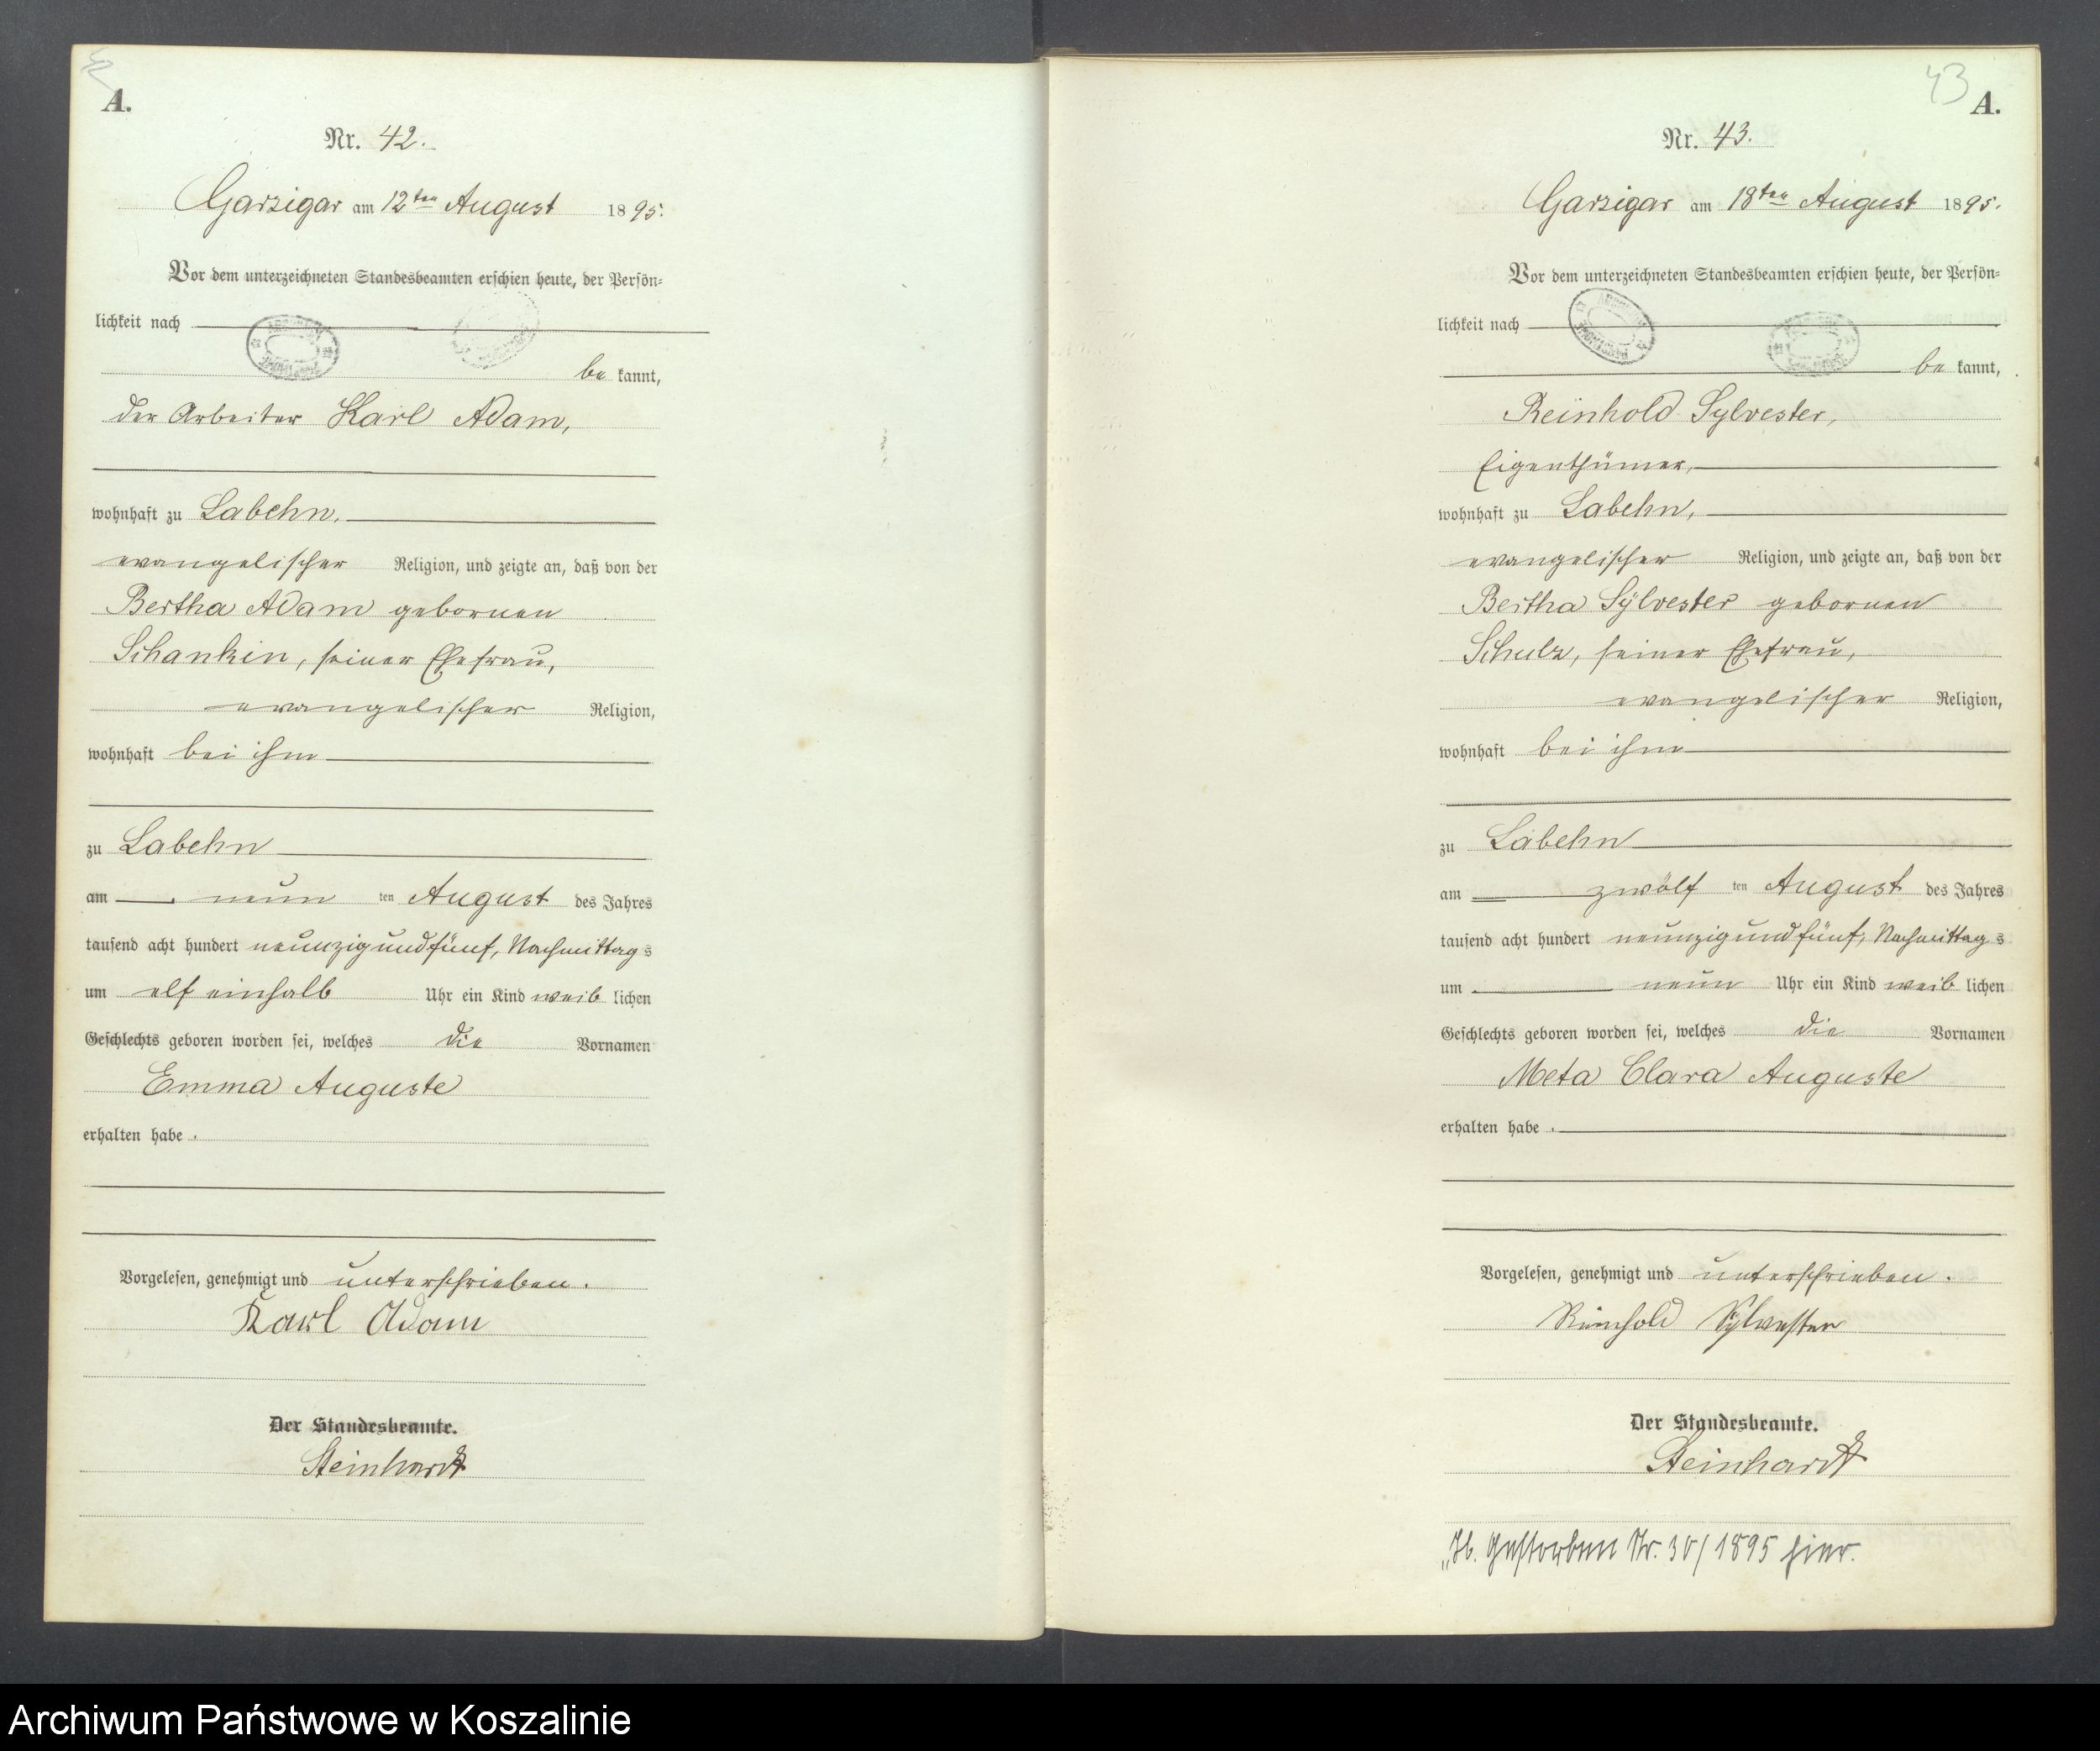 42
A.
Nr. 42.
Garzigar am 12ten August 1895.
Vor dem unterzeichneten Standesbeamten erschien heute, der Persön-
lichkeit nach
be kannt,
der Arbeiter Karl Adam,
wohnhaft zu Labehn,
evangelischer Religion, und zeigte an, daß von der
Bertha Adam gebornen
Schankin, seiner Ehefrau,
evangelischer Religion,
wohnhaft bei ihm
zu Labehn
am neun ten August des Jahres
tausend acht hundert neunzig und fünf, Nachmittags
um elf einhalb Uhr ein Kind weiblichen
Geschlechts geboren worden sei, welches die Vornamen
Emma Auguste
erhalten habe.
Vorgelesen, genehmigt und unterschrieben.
Karl Adam
Der Standesbeamte.
Steinhardt
43
A.
Nr. 43.
Garzigar am 18ten August 1895.
Vor dem unterzeichneten Standesbeamten erschien heute, der Persön-
lichkeit nach
be kannt,
Reinhold Sylvester,
Eigenthümer,
wohnhaft zu Labehn,
evangelischer Religion, und zeigte an, daß von der
Bertha Sylvester gebornen
Schulz, seiner Ehefrau,
evangelischer Religion,
wohnhaft bei ihm
zu Labehn
am zwölf ten August des Jahres
tausend acht hundert neunzig und fünf, Nachmittags
um neun Uhr ein Kind weiblichen
Geschlechts geboren worden sei, welches die Vornamen
Meta Clara Auguste
erhalten habe.
Vorgelesen, genehmigt und unterschrieben.
Reinhold Sylvester
Der Standesbeamte.
Steinhardt
Gestorben Nr. 30/1895 hier.
Archiwum Państwowe w Koszalinie